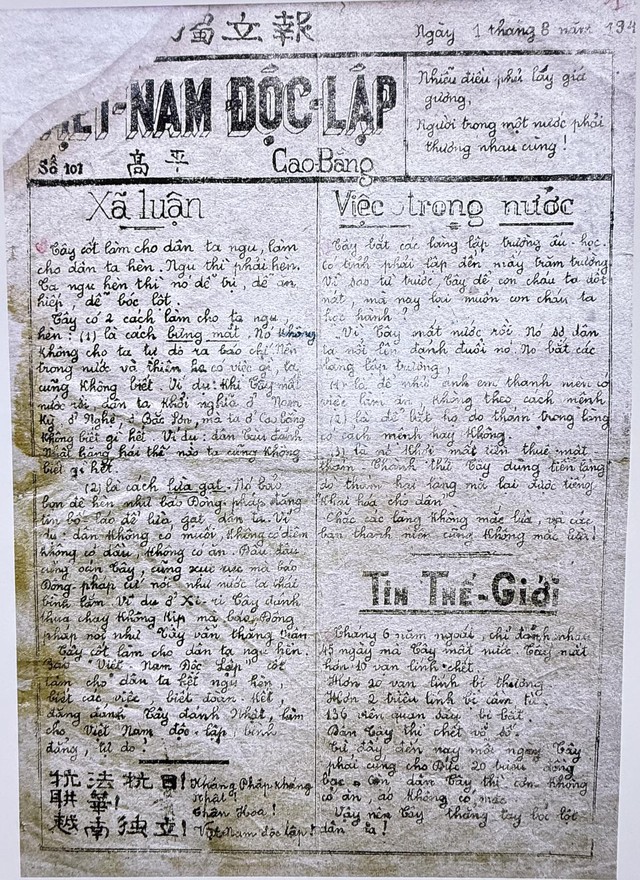 獨立報
Ngày 1 tháng 8 năm 194
VIỆT-NAM ĐỘC-LẬP
Số 101
高平
Cao-Bằng
Nhiễu điều phủ lấy giá
gương,
Người trong một nước phải
thương nhau cùng!
Xã luận
Tây cốt làm cho dân ta ngu, làm
cho dân ta hèn. Ngu thì phải hèn.
Ta ngu hèn thì nó dễ trị, dễ áp
hiếp, dễ bóc lột.
Tây có 2 cách làm cho ta ngu
hèn: (1) là cách bưng mắt. Nó không
không cho ta tự do ra báo chí. Nên
trong nước và thiên hạ có việc gì, ta
cũng không biết. Ví dụ: khi Tây mất
nước rồi, dân ta khởi nghĩa ở Nam
Kỳ ở Nghệ, ở Bắc Sơn, mà ta ở Cao bằng
không biết gì hết. Ví dụ: dân Tàu đánh
Nhật hăng hái thế nào ta cũng không
biết gì hết.
(2) là cách lừa gạt. Nó bảo
bọn đê hèn như báo Đông-pháp đăng
tin bố-láo để lừa gạt dân ta. Ví
dụ: dân không có muối, không có diêm
không có dầu, không có ăn. Đâu đâu
cũng oán Tây, cũng xuc xuc mà báo
Đông-pháp cứ nói như nước ta thái
bình lắm. Ví dụ ở Xi-ri Tây đánh
thua chạy không kịp mà báo Đông
pháp nói như Tây vẫn thắng trận
Tây cốt làm cho dân ta ngu hèn.
Báo "Việt Nam Độc Lập" cốt
làm cho dân ta hết ngu hèn,
biết các việc, biết đoàn kết,
đặng đánh Tây đánh Nhật, làm
cho Việt Nam độc-lập, bình
đẳng, tự do.
抗法抗日! Kháng Pháp kháng
Nhật!
聯華! Thân Hoa!
越南獨立! Việt-Nam độc lập!
Việc trong nước
Tây bắt các làng lập trường ấu-học.
Có tỉnh phải lập đến mấy trăm trường
Vì sao từ trước Tây để con cháu ta dốt
nát, mà nay lại muốn con cháu ta
học hành?
Vì Tây mất nước rồi. Nó sợ dân
ta nổi lên đánh đuổi nó. Nó bắt các
làng lập trường,
(1) là để như anh em thanh niên có
việc làm ăn, không theo cách mệnh
(2) là để bắt họ do thám trong làng
có cách mệnh hay không.
(3) là nó khỏi mất tiền thuê mật
thám. Thành thử Tây dùng tiền làng
do thám hai làng mà lại được tiếng
khai hóa cho dân
Chắc các làng không mắc lừa, và các
bạn thanh niên cũng không mắc lừa!
TIN THẾ-GIỚI
Tháng 6 năm ngoái, chỉ đánh nhau
45 ngày mà Tây mất nước. Tây mất
hơn 10 vạn lính chết.
Hơn 20 vạn lính bị thương.
Hơn 2 triệu lính bị cầm tù.
136 viên quan bị bắt
Dân Tây thì chết vô số.
Từ đấy đến nay mỗi ngày Tây
phải cúng cho Đức 20 triệu đồng
bạc. Con dân Tây thì cơm không
có ăn, áo không có mặc
Vậy nên Tây thẳng tay bóc lột
dân ta!